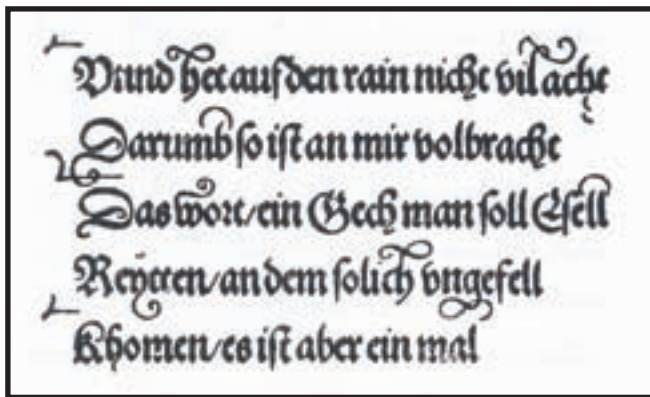 Vnnd het auf den rain nicht vil acht
Darumb so ist an mir volbracht
Das wort / ein Gech man soll Esell
Reyten / an dem solich vngefell
Khomen / es ist aber ein mal